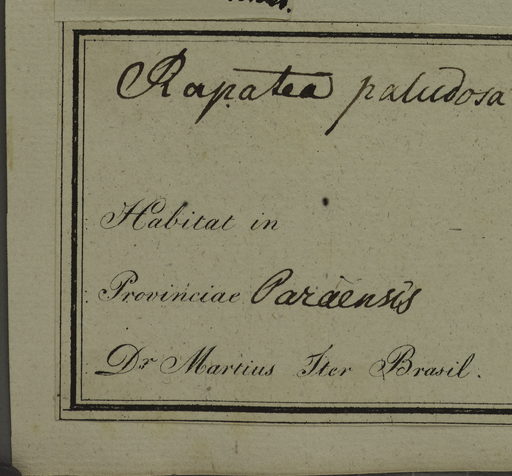 Rapatea paludosa
Habitat in
Provinciae Paraensis
Dr Martius Iter Brasil.